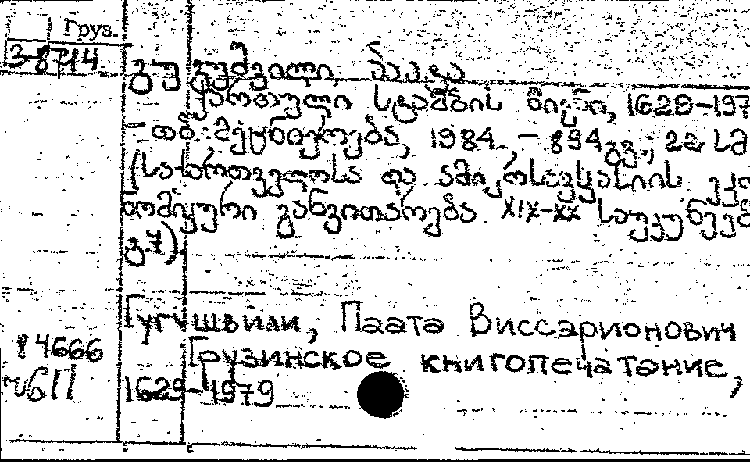 Груз.
3-8744
გუგუშვილი, პაატა
ქართული სტამბის წიგნი, 1629-197
- თბ.: მეცნიერება, 1984. - 894 გვ.; 22 სმ
(საქართველოსა და ამიერკავკასიის ეკო
ნომიკური განვითარება XIX-XX საუკუნეებ
გ.7).
Гугушвили, Паата Виссарионович
84666
Грузинское книгопечатание,
1629-1979